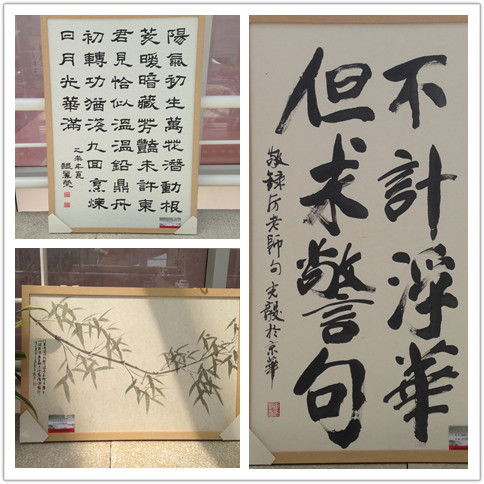 陽氣初生萬花潛動根
荄暖暗藏芳豔未許東
君見恰似溫溫鉛鼎丹
初轉功猶淺九回烹煉
日月光華滿
乙未年夏
不計浮華
但求警句
敬録厉老師句 於京華